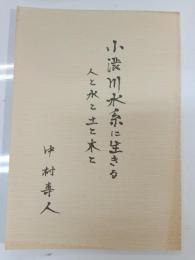 小渋川水系に生きる
人と水と土と木と
中村寿人